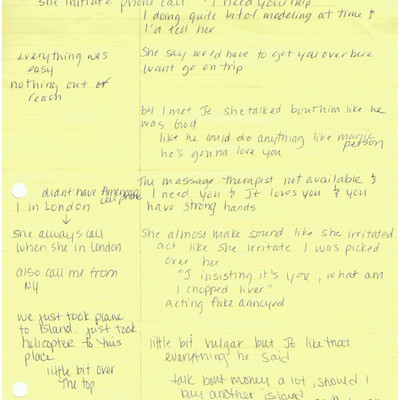 she initiate phone call "I need your help
I doing quite bit of modeling at time &
I'd tell her
everything was
easy
nothing out of
reach
She say would have to get you over here
want go on trip
by I met Je she talked bout him like he
was God
like he could do anything like magic
person
he's gonna love you
The massage therapist not available &
I need you & JE loves you & you
have strong hands
didn't have American
cell phone
I in London
↓
she always call
when she in London
also call me from
NY
She almost make sound like she irritated
act like she irritate I was picked
over her
"I insisting it's you, what am
I chopped liver"
acting fake annoyed
we just took plane
to island. just took
helicopter to this
place
little bit over
The top
little bit vulgar but JE like that
everything he said
talk bout money a lot, should I
buy another island